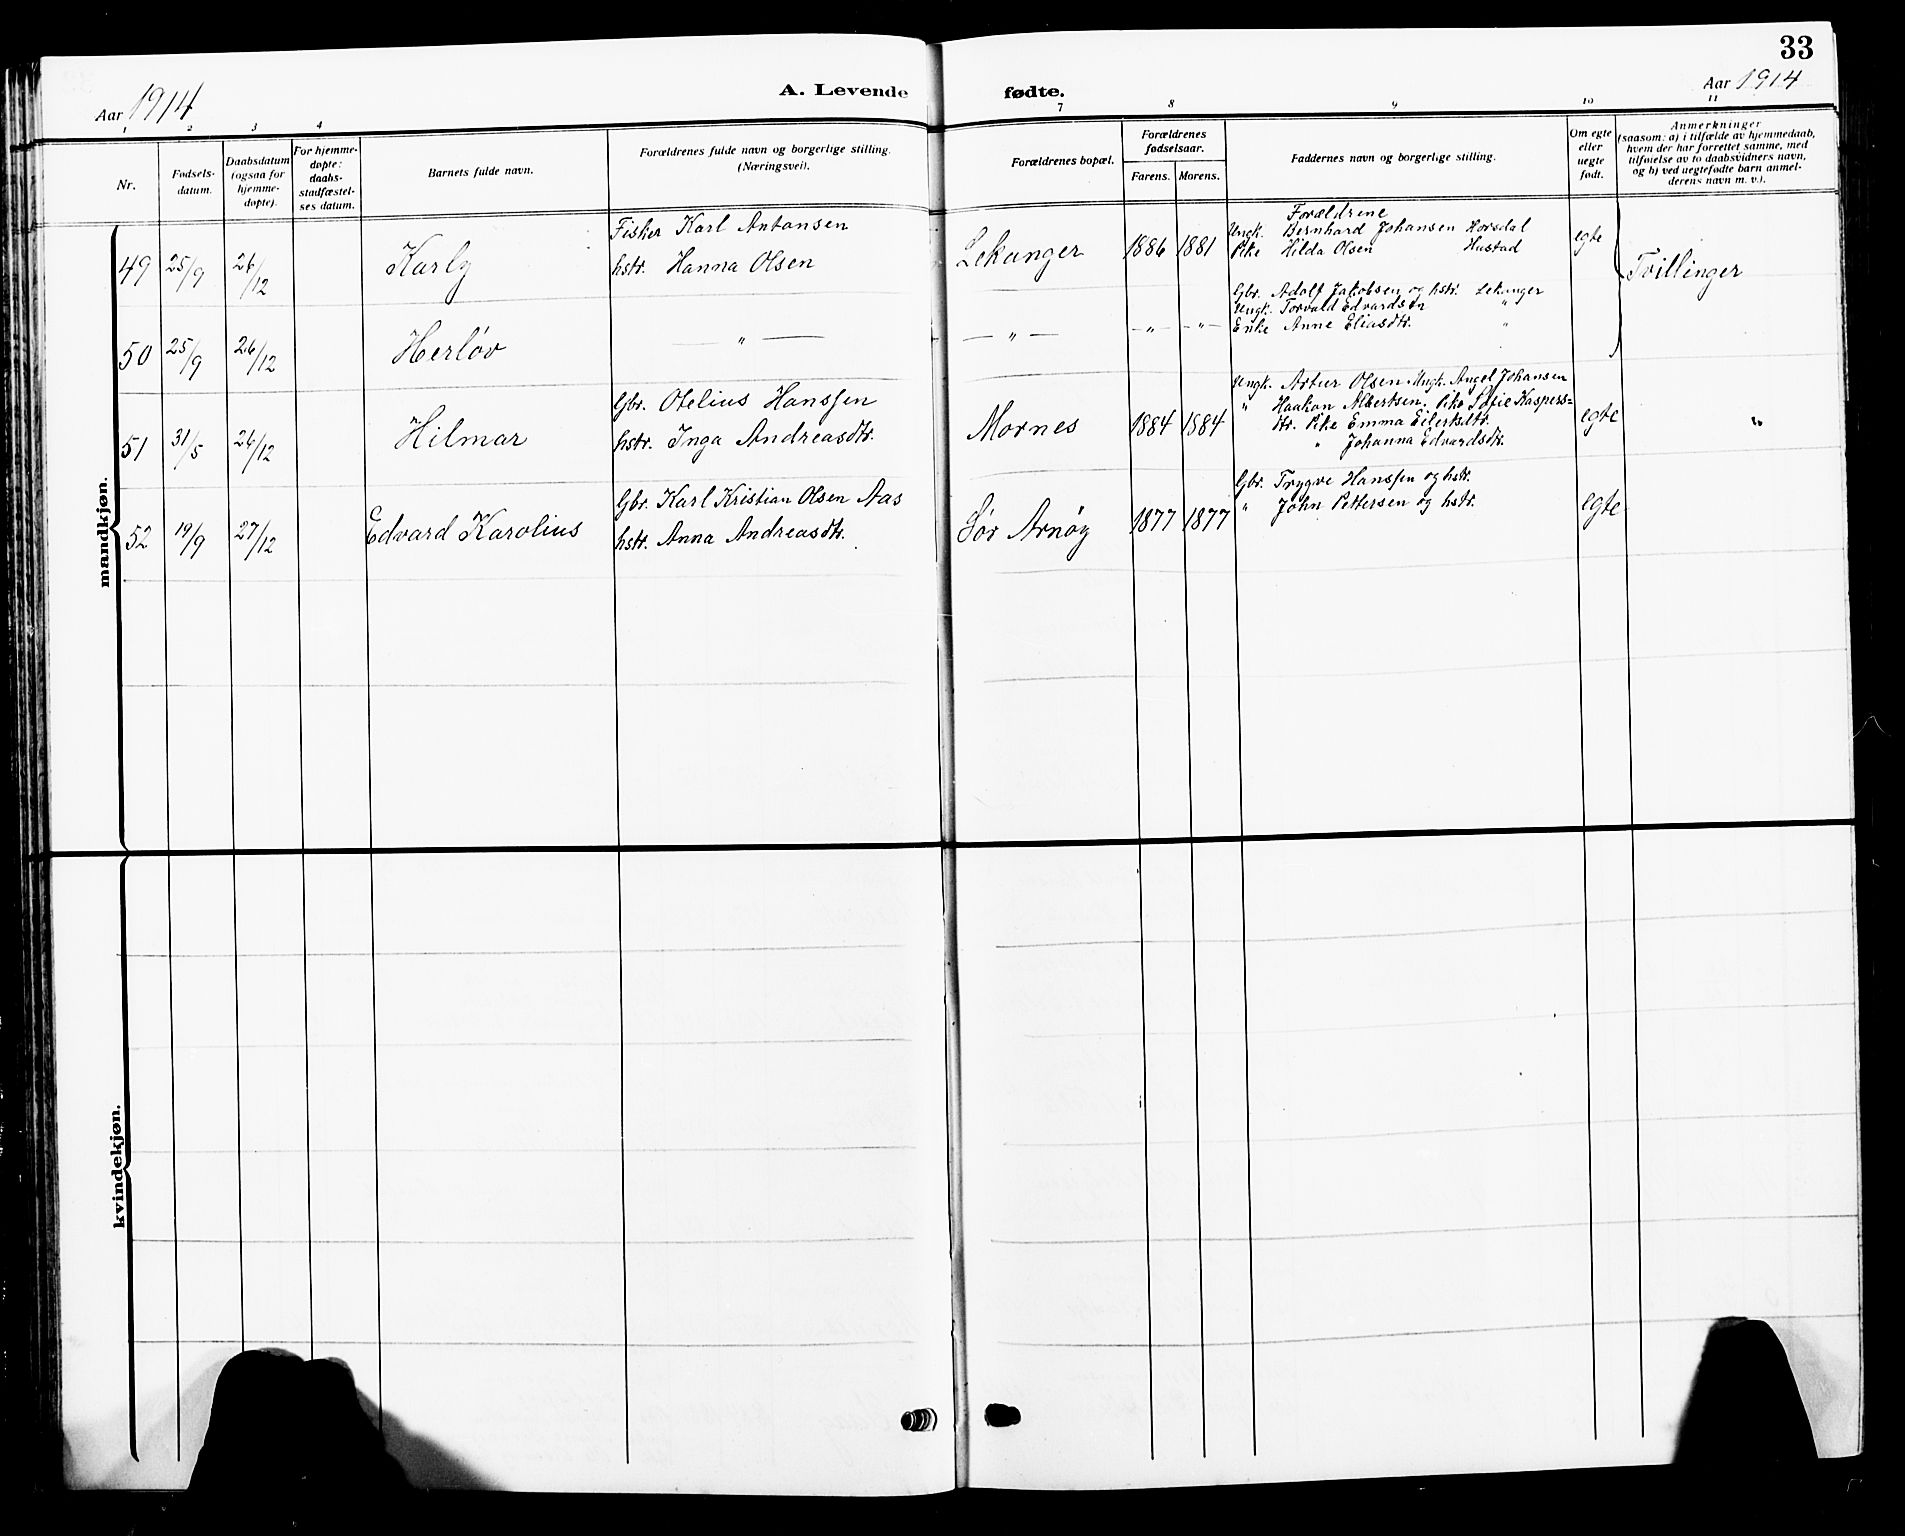 33
Aar 1914
A. Levende fødte.
Aar 1914
1 2 3 4 7 8 9 10 11
Nr.
Fødsels-
datum.
Daabsdatum
(ogsaa for
hjemme-
døpte).
For hjemme-
døpte:
daabs-
stadfæstel-
ses datum.
Barnets fulde navn.
Forældrenes fulde navn og borgerlige stilling.
(Næringsvei).
Forældrenes bopæl.
Forældrenes
fødselsaar.
Farens. Morens.
Faddernes navn og borgerlige stilling.
Om egte
eller
uegte
født.
Anmerkninger
(saasom: a) i tilfælde av hjemmedaab,
hvem der har forrettet samme, med
tilføielse av to daabsvidners navn,
og b) ved uegtefødte barn anmel-
derens navn m. v.).
mandkjøn.
49 25/9 26/12 Karly
Fisker Karl Antonsen
hstr. Hanna Olsen
Lekanger 1886 1881
Forældrene
Ungk. Bernhard Johansen Horsdal
Pike Hilda Olsen Hustad
egte
Tvillinger
50 25/9 26/12 Herløv
— " —
— " — — " — — " —
Gbr. Adolf Jakobsen og hstr. Lekanger
Ungk. Torvald Edvardsen "
Enke Anne Eliasdtr. "
51 31/5 26/12 Hilmar
Gbr. Otelius Hanssen
hstr. Inga Andreasdtr.
Mornes 1884 1884
Ungk. Artur Olsen Ungk. Angel Johansen
" Haakon Albertsen. Pike Sofie Kaspers=
dtr. Pike Emma Eilertsdtr.
" Johanna Edvardsdtr.
egte "
52 19/9 27/12 Edvard Karolius
Gbr. Karl Kristian Olsen Aas
hstr. Anna Andreasdtr.
Sør Arnøy 1877 1877
Gbr. Trygve Hanssen og hstr.
" John Pettersen og hstr.
egte
kvindekjøn.